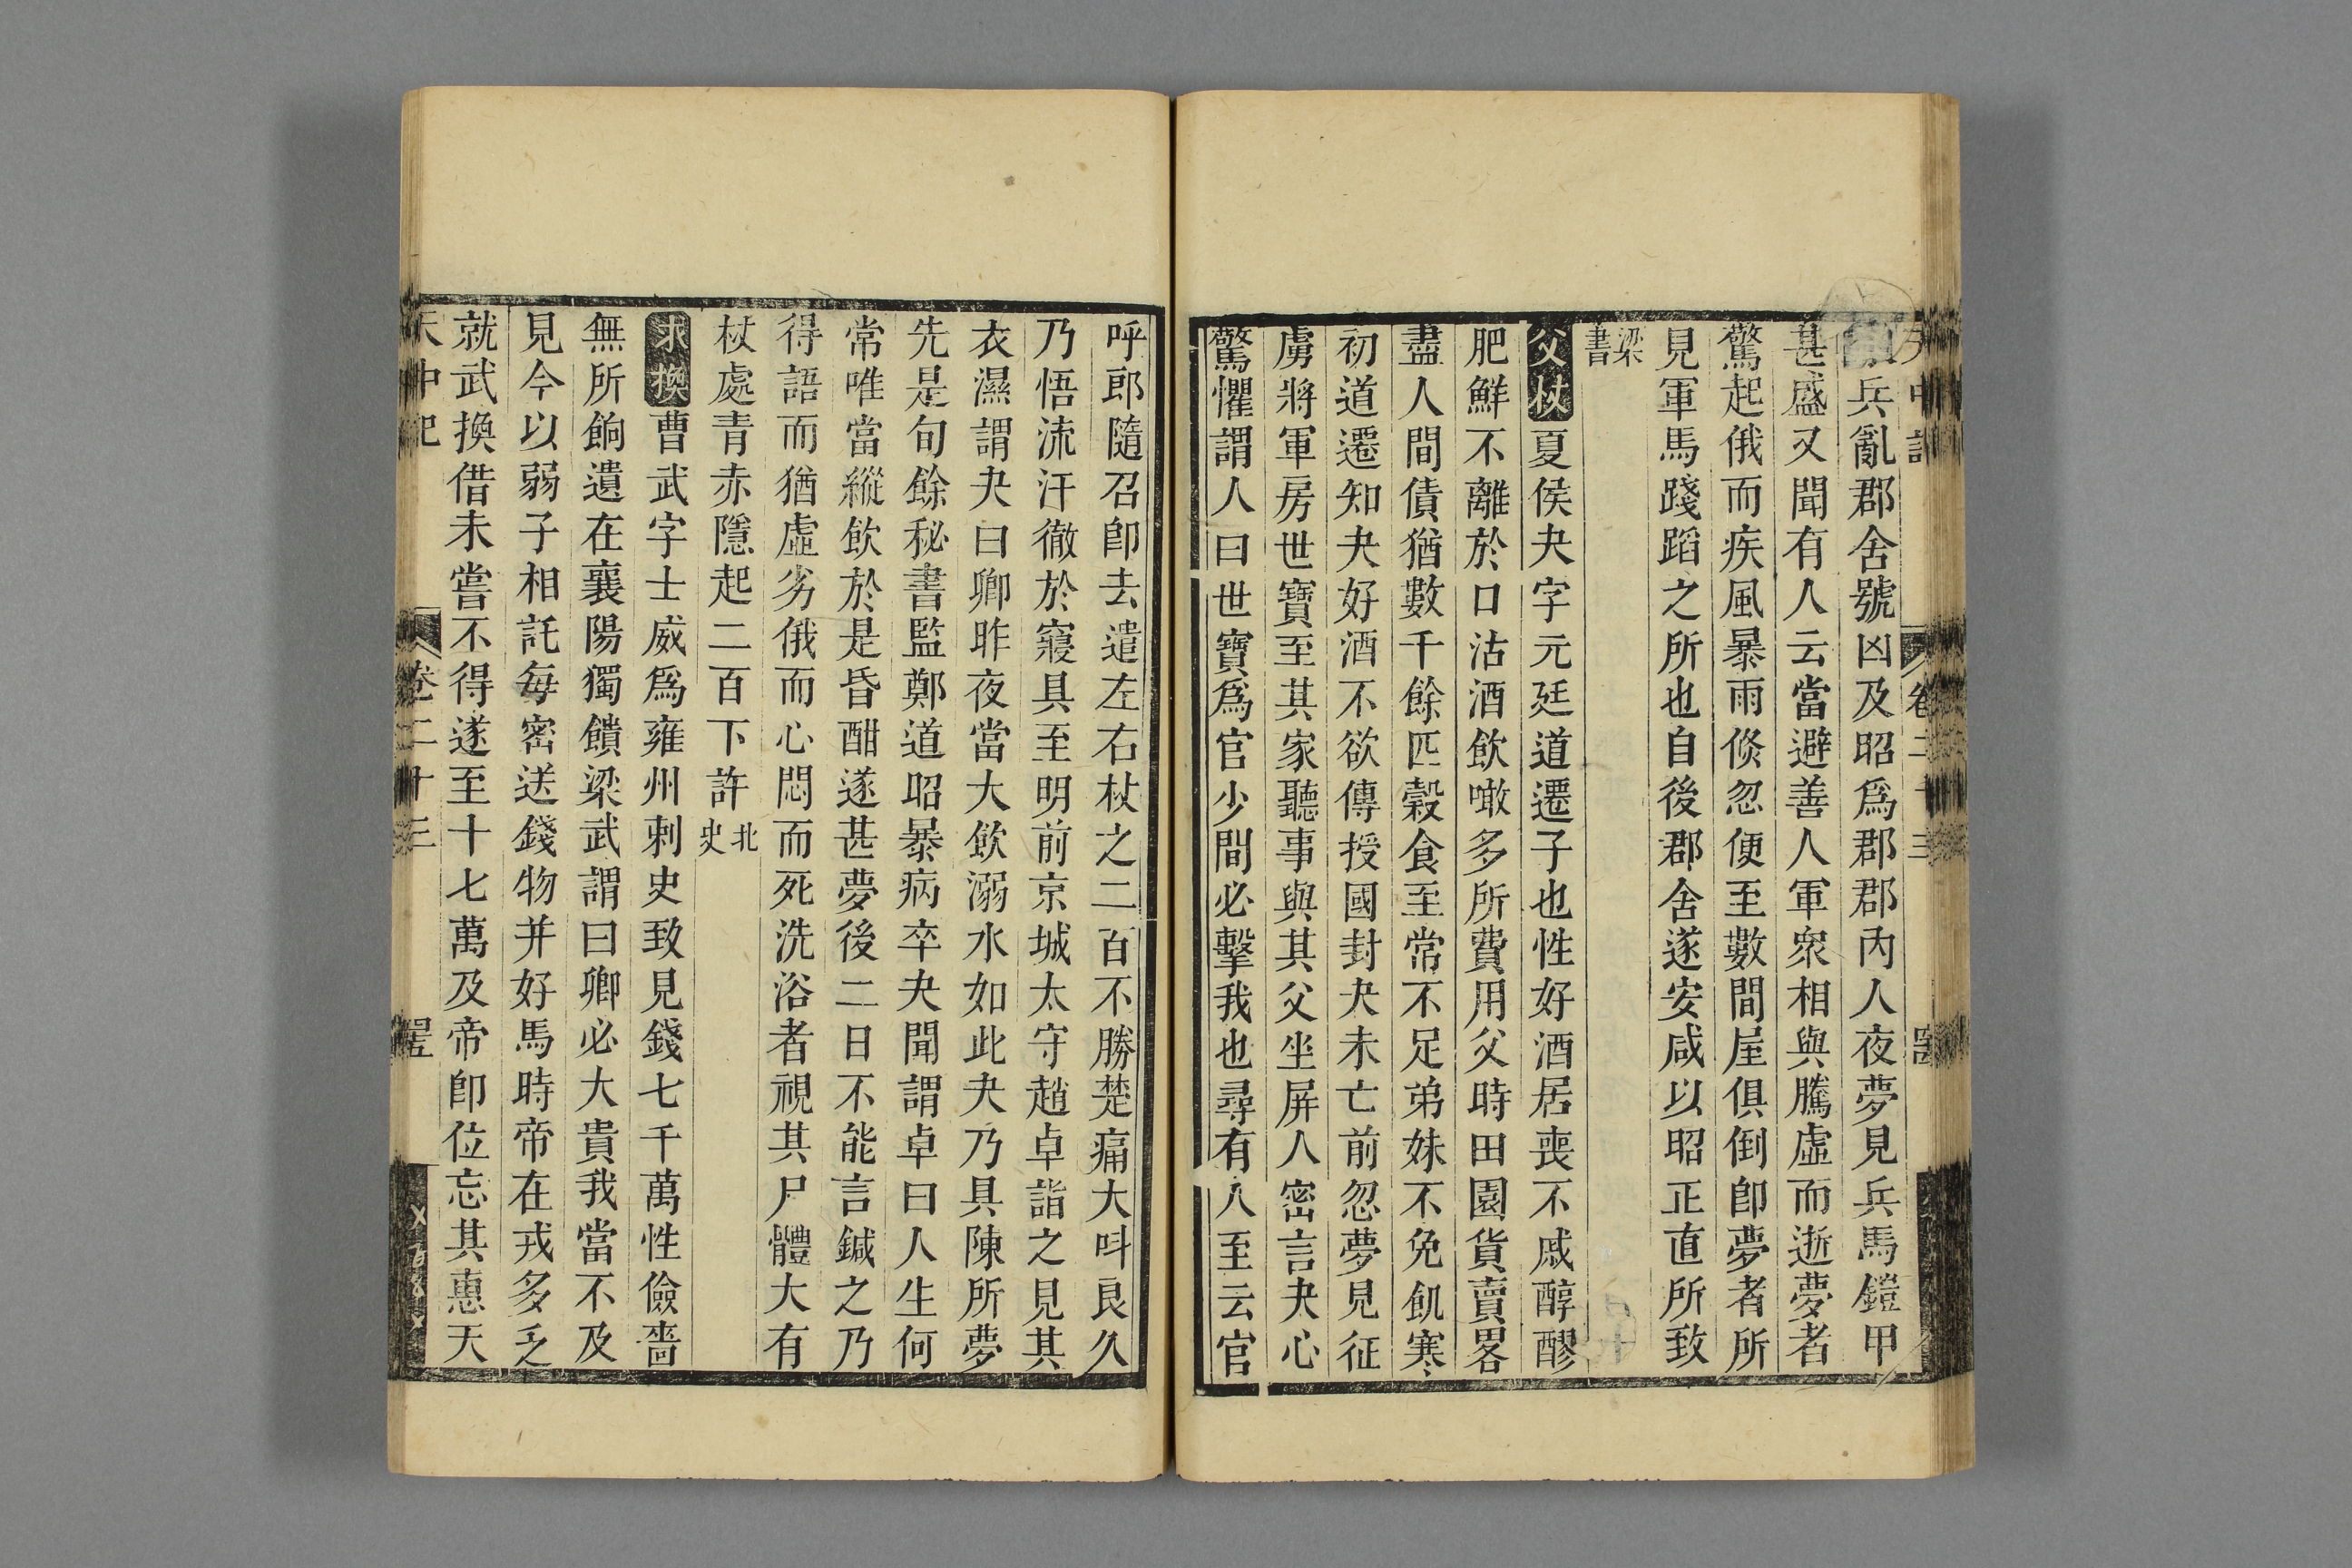 兵亂郡舍號凶及昭爲郡郡內人夜夢見兵馬鎧甲
甚盛又聞有人云當避善人軍衆相與騰虛而逝夢者
驚起俄而疾風暴雨倏忽便至數間屋俱倒卽夢者所
見軍馬踐蹈之所也自後郡舍遂安咸以昭正直所致
梁書
父杖夏侯夬字元廷道遷子也性好酒居喪不戚醇醪
肥鮮不離於口沽酒飲噉多所費用父時田園貨賣畧
盡人間債猶數千餘匹穀食至常不足弟妹不免飢寒
初道遷知夬好酒不欲傳授國封夬未亡前忽夢見征
虜將軍房世寶至其家聽事與其父坐屏人密言夬心
驚懼謂人曰世寶爲官少間必擊我也尋有人至云官
呼郎隨召卽去遣左右杖之二百不勝楚痛大呌良久
乃悟流汗徹於寢具至明前京城太守趙卓詣之見其
衣濕謂夬曰卿昨夜當大飲溺水如此夬乃具陳所夢
先是旬餘秘書監鄭道昭暴病卒夬聞謂卓曰人生何
常唯當縱飲於是昏酣遂甚夢後二日不能言鍼之乃
得語而猶虛劣俄而心悶而死洗浴者視其尸體大有
杖處青赤隱起二百下許北史
求換曹武字士威爲雍州刺史致見錢七千萬性儉嗇
無所餉遺在襄陽獨饋梁武謂曰卿必大貴我當不及
見今以弱子相託每密送錢物并好馬時帝在戎多乏
就武換借未嘗不得遂至十七萬及帝卽位忘其惠天
天中記 卷二十三 罡五